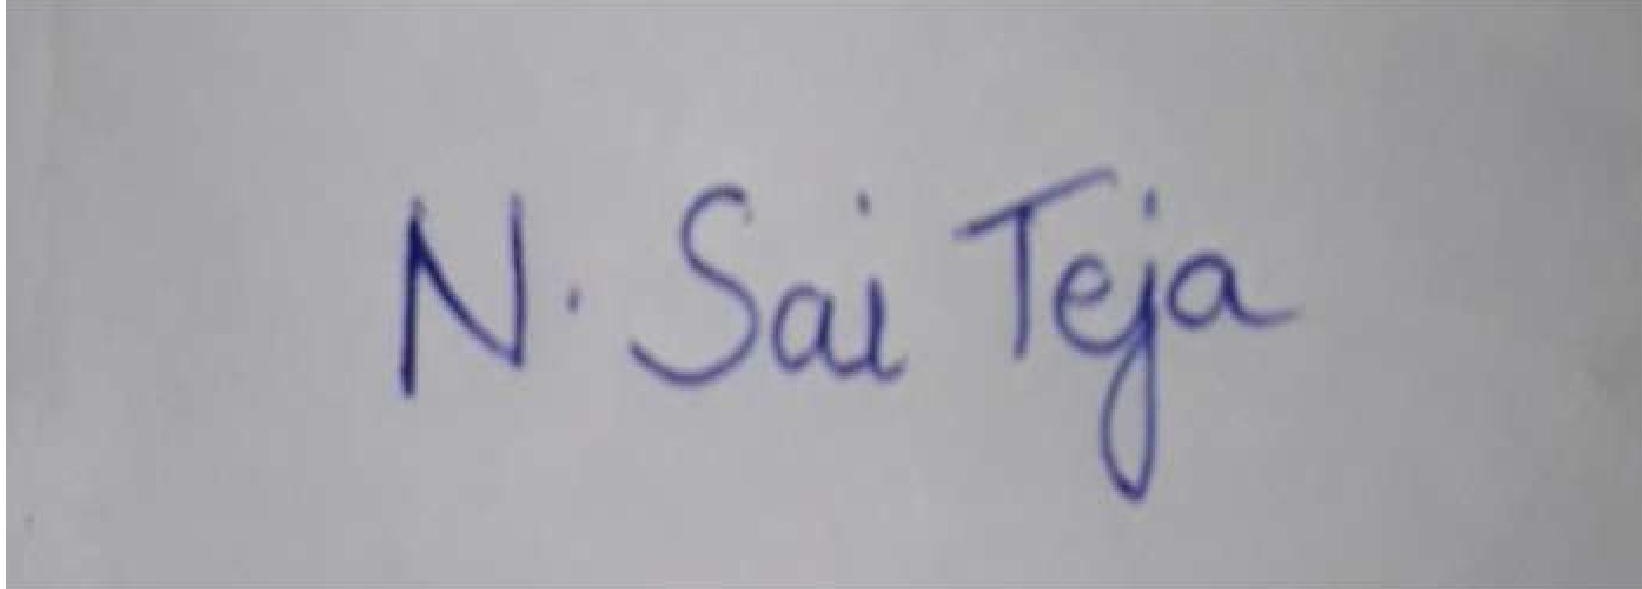 N. Sai Teja